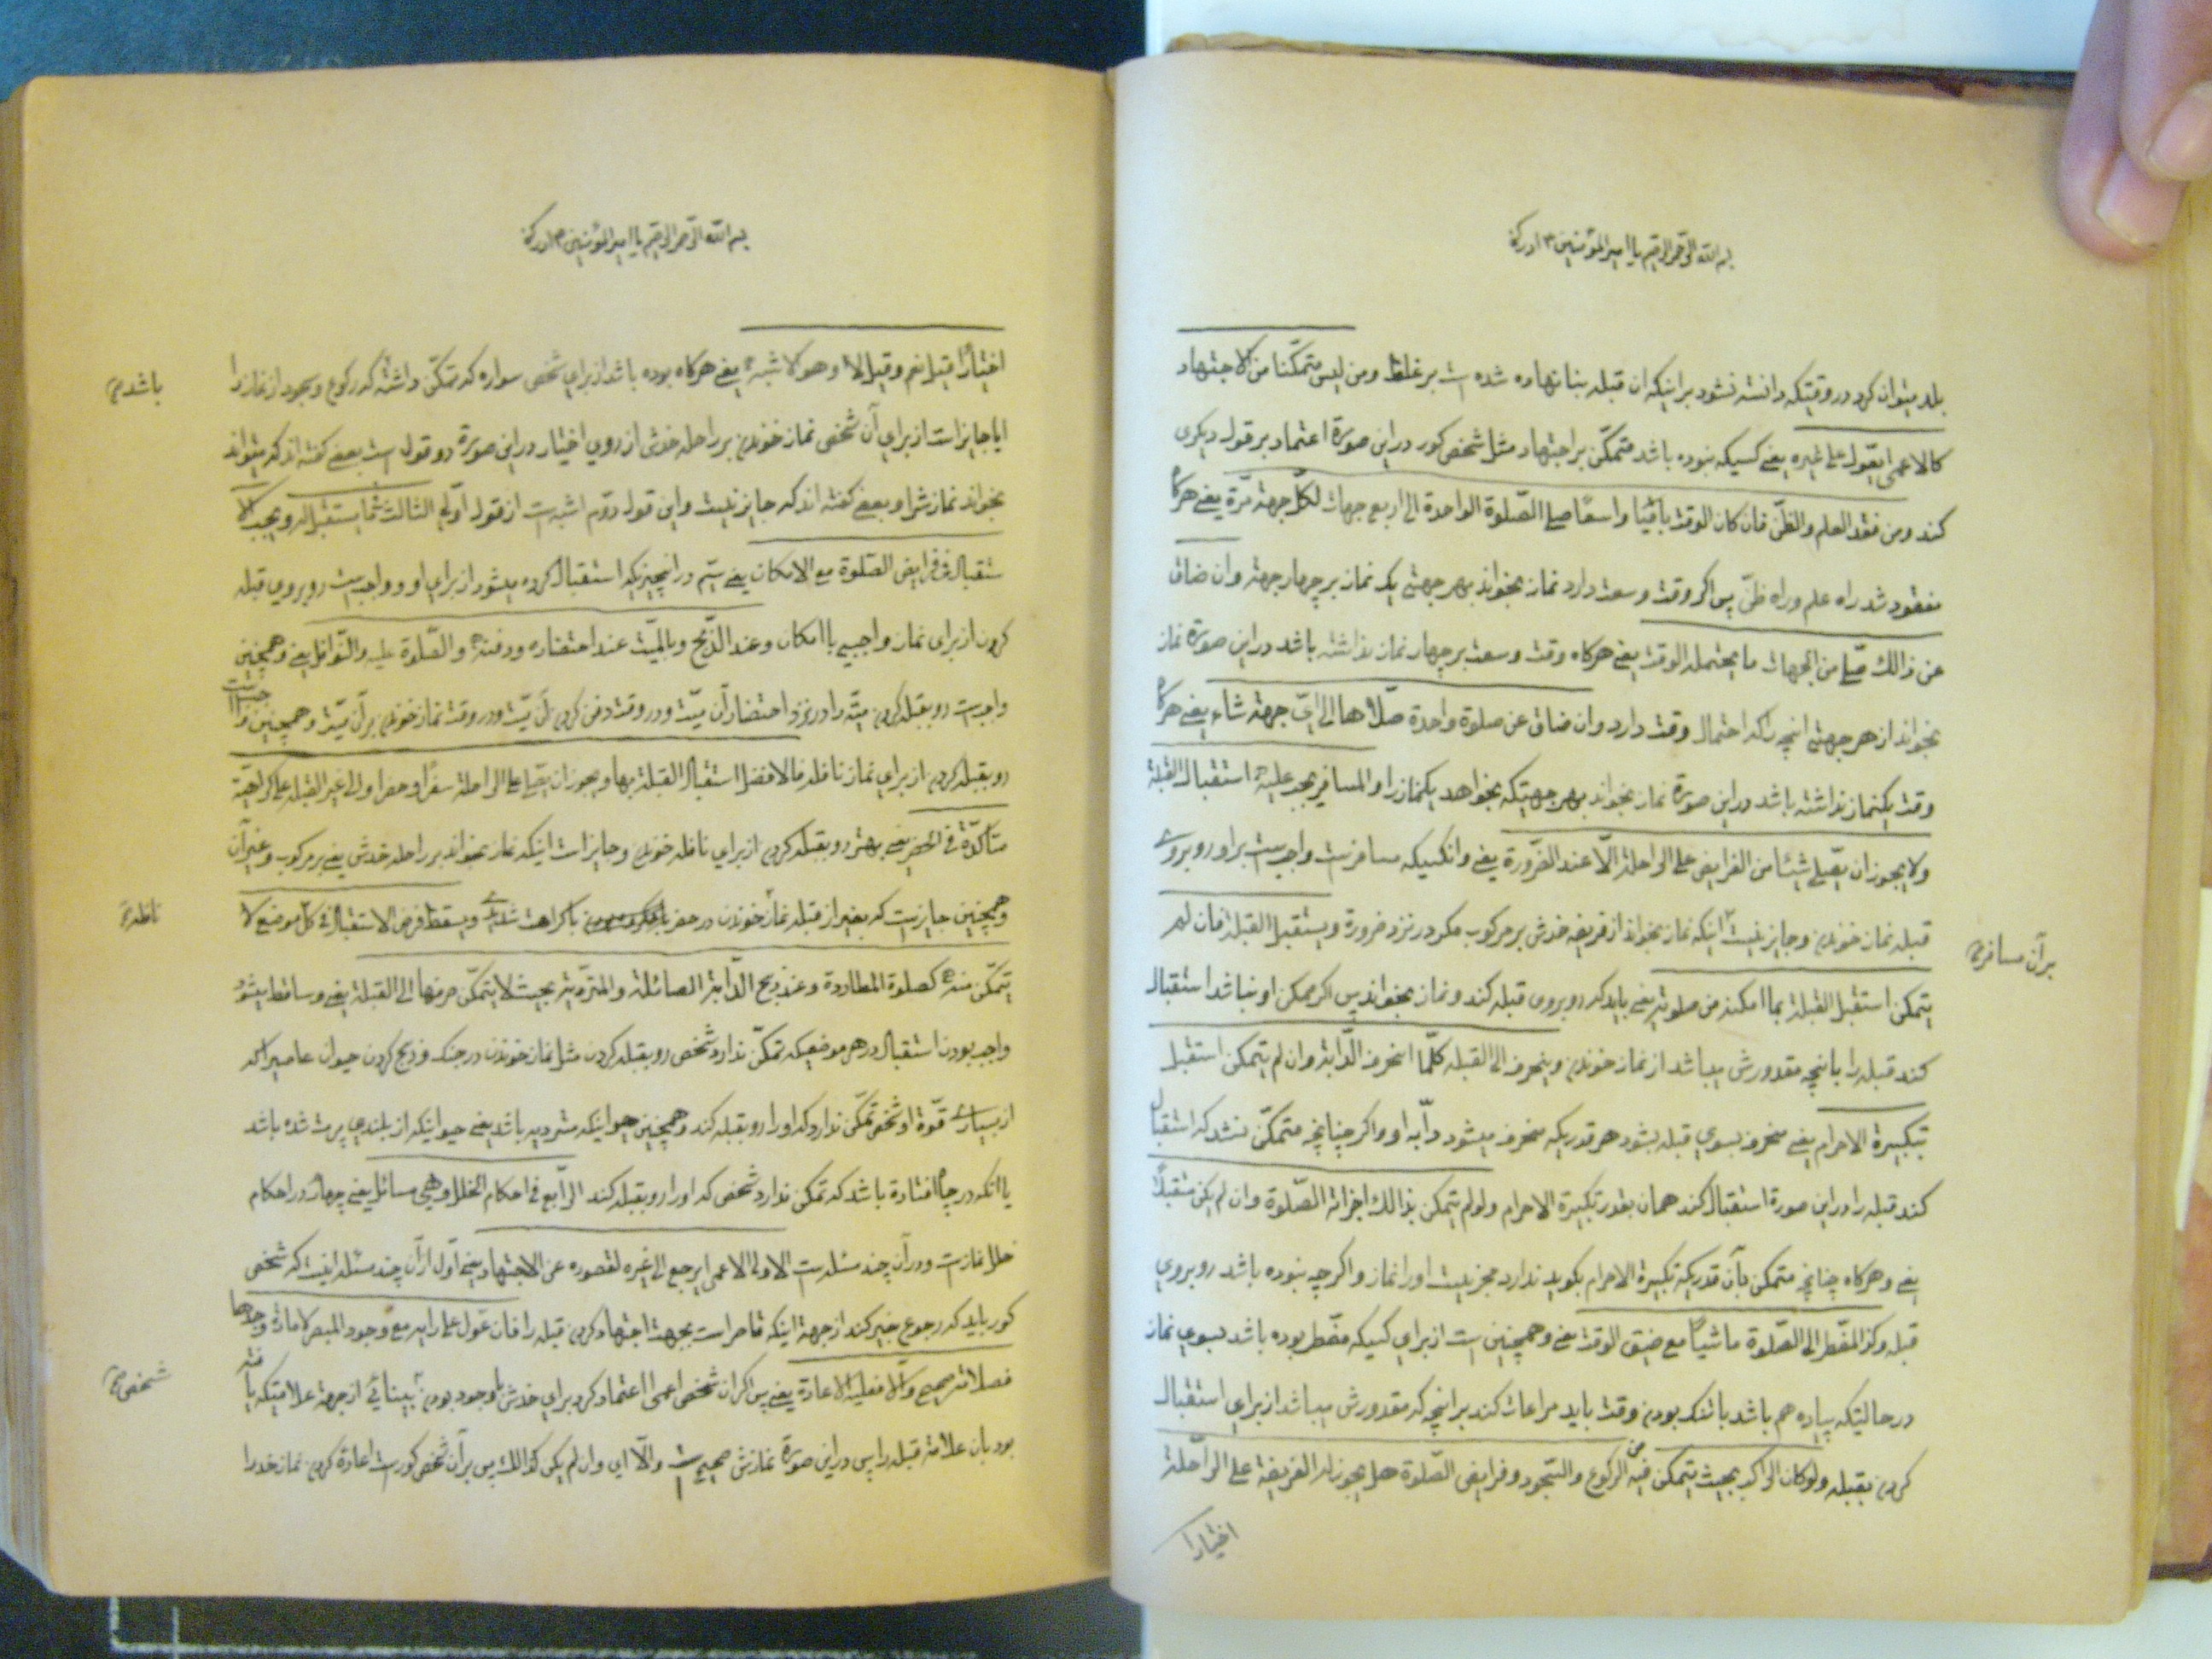 بسم الله الرحمن الرحیم یا امیر المؤمنین ادرکنی
بلد میتوان کرد در وقتیکه دانسته نشود بر اینکه ان قبله بنا نهاده شده است بر غلط ومن لیس متمکنا من الاجتهاد
کالاعمی یعول علی غیره یعنی کسیکه نبوده باشد متمکّن بر اجتهاد مثل شخص کور در این صورة اعتماد بر قول دیکری
کند ومن فقد العلم والظنّ فان کان الوقت باقیا واسعًا صلی الصّلوة الواحدة الی اربع جهات لکلّ جهة مرّة یعنی هرکاه
مفقود شد راه علم وراه ظنّ پس اکر وقت وسعت دارد نماز بخواند بهر جهتی یک نماز بر چهار جهة وان ضاق
عن ذالک صلّی من الجهات ما یحتمله الوقت یعنی هرکاه وقت وسعت بر چهار نماز نداشته باشد در این صورة نماز
بخواند از هر جهتی انچه را که احتمال وقت دارد وان ضاق عن صلوة واحدة صلّاها الی ایّ جهة شاء یعنی هرکاه
وقت یکنماز نداشته باشد در این صورة نماز بخواند بهر جهتیکه بخواهد یکنماز را والمسافر یجب علیه استقبال القبلة
ولا یجوز ان یصّلی شیئا من الفرایض علی الراحلة الّا عند الضّرورة یعنی وانکسیکه مسافرست واجبست بر او روبروی
قبله نماز خوندن وجایز نیست اینکه نماز بخواند از فریضه خدش بر مرکوب مکر در نزد ضرورة ویستقبل القبلة فان لم
بر آن مسافر
یتمکن استقبل القبلة بما امکنه من صلوته یعنی باید که روبروی قبله کند ونماز بخواند پس اکر ممکن او نباشد استقبال
کند قبله را بانچه مقدورش میباشد از نماز خوندن وینحرف الی القبله کلّما انحرف الدّابة وان لم یتمکن استقبل
بتکبیرة الاحرام یعنی منحرف بسوی قبله بشود هر قدریکه منحرف میشود دابّه او واکر چنانچه متمکّن نشد که استقبال
کند قبله را در این صورة استقبال کند همان بقدر تکبیرة الاحرام ولو لم یتمکن بذالک اجزائه الصّلوة وان لم یکن مستقبلاً
یعنی وهرکاه چنانچه متمکن بآن قدریکه تکبیرة الاحرام بکوید ندارد مجزیست او را نماز واکر چه نبوده باشد روبروی
قبله وکذا المضّطر الی الصّلوة ماشیاً مع ضیق الوقت یعنی وهمچنین است از برای کسیکه مضّطر بوده باشد بسوی نماز
در حالتیکه پیاده هم باشد با تنک بودن وقت باید مراعات کند بر انچه که مقدورش میباشد از برای استقبال
کردن بقبله ولو کان الراکب بحیث یتمکن من الرکوع والسّجود وفرایض الصّلوة هل یجوز له الفریضة علی الراحلة
اختیارا
بسم الله الرحمن الرحیم یا امیر المؤمنین ادرکنی
اختیارًا قیل نعم وقیل لا وهو الاشبه یعنی هرکاه بوده باشد از برای شخص سواره که تمکّن داشته که رکوع وسجود از نماز را
باشد
ایا جایز است از برای آن شخص نماز خوندن بر راحله خدش از روی اختیار در این صورة دو قول است بعضی کفته اند که میتواند
بخواند نمازش را وبعضی کفته اند که جایز نیست واین قول دوّم اشبه ست از قول اوّلی الثالث ما یستقبل له ویجب الا
ستقبال فی فرایض الصّلوة مع الامکان یعنی سیّم در انچیزیکه استقبال کرده میشود از برای او و واجبست روبروی قبله
کردن از برای نماز واجبی با امکان وعند الذّبح وبالمیّت عند احتضاره ودفنه والصّلوة علیه والنّوافل یعنی وهمچنین
واجبست رو بقبله کردن میّته را در نزد احتضار آن میّت ودر وقت دفن کردن آن میّت ودر وقت نماز خوندن بر آن میّت وهمچنین واجبست
رو بقبله کردن از برای نماز نافله فالافضل استقبال القبلة بها ویجوز ان یصّلی علی الراحلة سفرًا وحضرا والی غیر القبلة علی کراهیّة
متأکدّة فی الحضر یعنی بهتر رو بقبله کردن از برای نافله خوندن وجایز است اینکه نماز بخواند بر راحله خدش یعنی بر مرکوب وغیر آن
وهمچنین جایزست که بغیر از قبله نماز خوندن در حضر با کراهت شدیدی ویسقط فرض الاستقبال فی کلّ موضع لا
نافله
یتمکّن منه کصلوة المطاردة وعند ذبح الدّابة الصائلة والمتردّیة بحیث لا یتمکّن صرفها الی القبلة یعنی وساقط میشود
واجب بودن استقبال در هر موضعیکه تمکّن ندارد شخص رو بقبله کردن مثل نماز خوندن در جنک وذبح کردن حیوان عاصیرا که
از بسیاری قوّة او شخص تمکّن ندارد که او را رو بقبله کند وهمچنین حیوانیکه متردیه باشد یعنی حیوانیکه از بلندی پرت شده باشد
یا انکه در چاه افتاده باشد که تمکن ندارد شخص که او را رو بقبله کند الرّابع فی احکام الخلل وهی مسائل یعنی چهارم در احکام
خلل نمازست ودر آن چند مسئله ست الاولی الاعمی یرجع الی غیره لقصوره عن الاجتهاد یعنی اوّل از آن چند مسئله اینست که شخص
کور باید که رجوع بغیر کند از جهة اینکه قاصر است بجهت اجتهاد کردن قبله را فان عوّل علی رایه مع وجود المبصر لامارة وجدها
فصلاته صحیح والّا فعلیه الاعادة یعنی پس اکر ان شخص اعمی اعتماد کرد برای خدش با وجود بودن بینائی از جهة علامتیکه یافته
شخص
بود بان علامة قبله را پس در این صورة نمازش صحیح ست والّا ای وان لم یکن کذالک پس بر آن شخص کورست اعادة کردن نماز خدرا